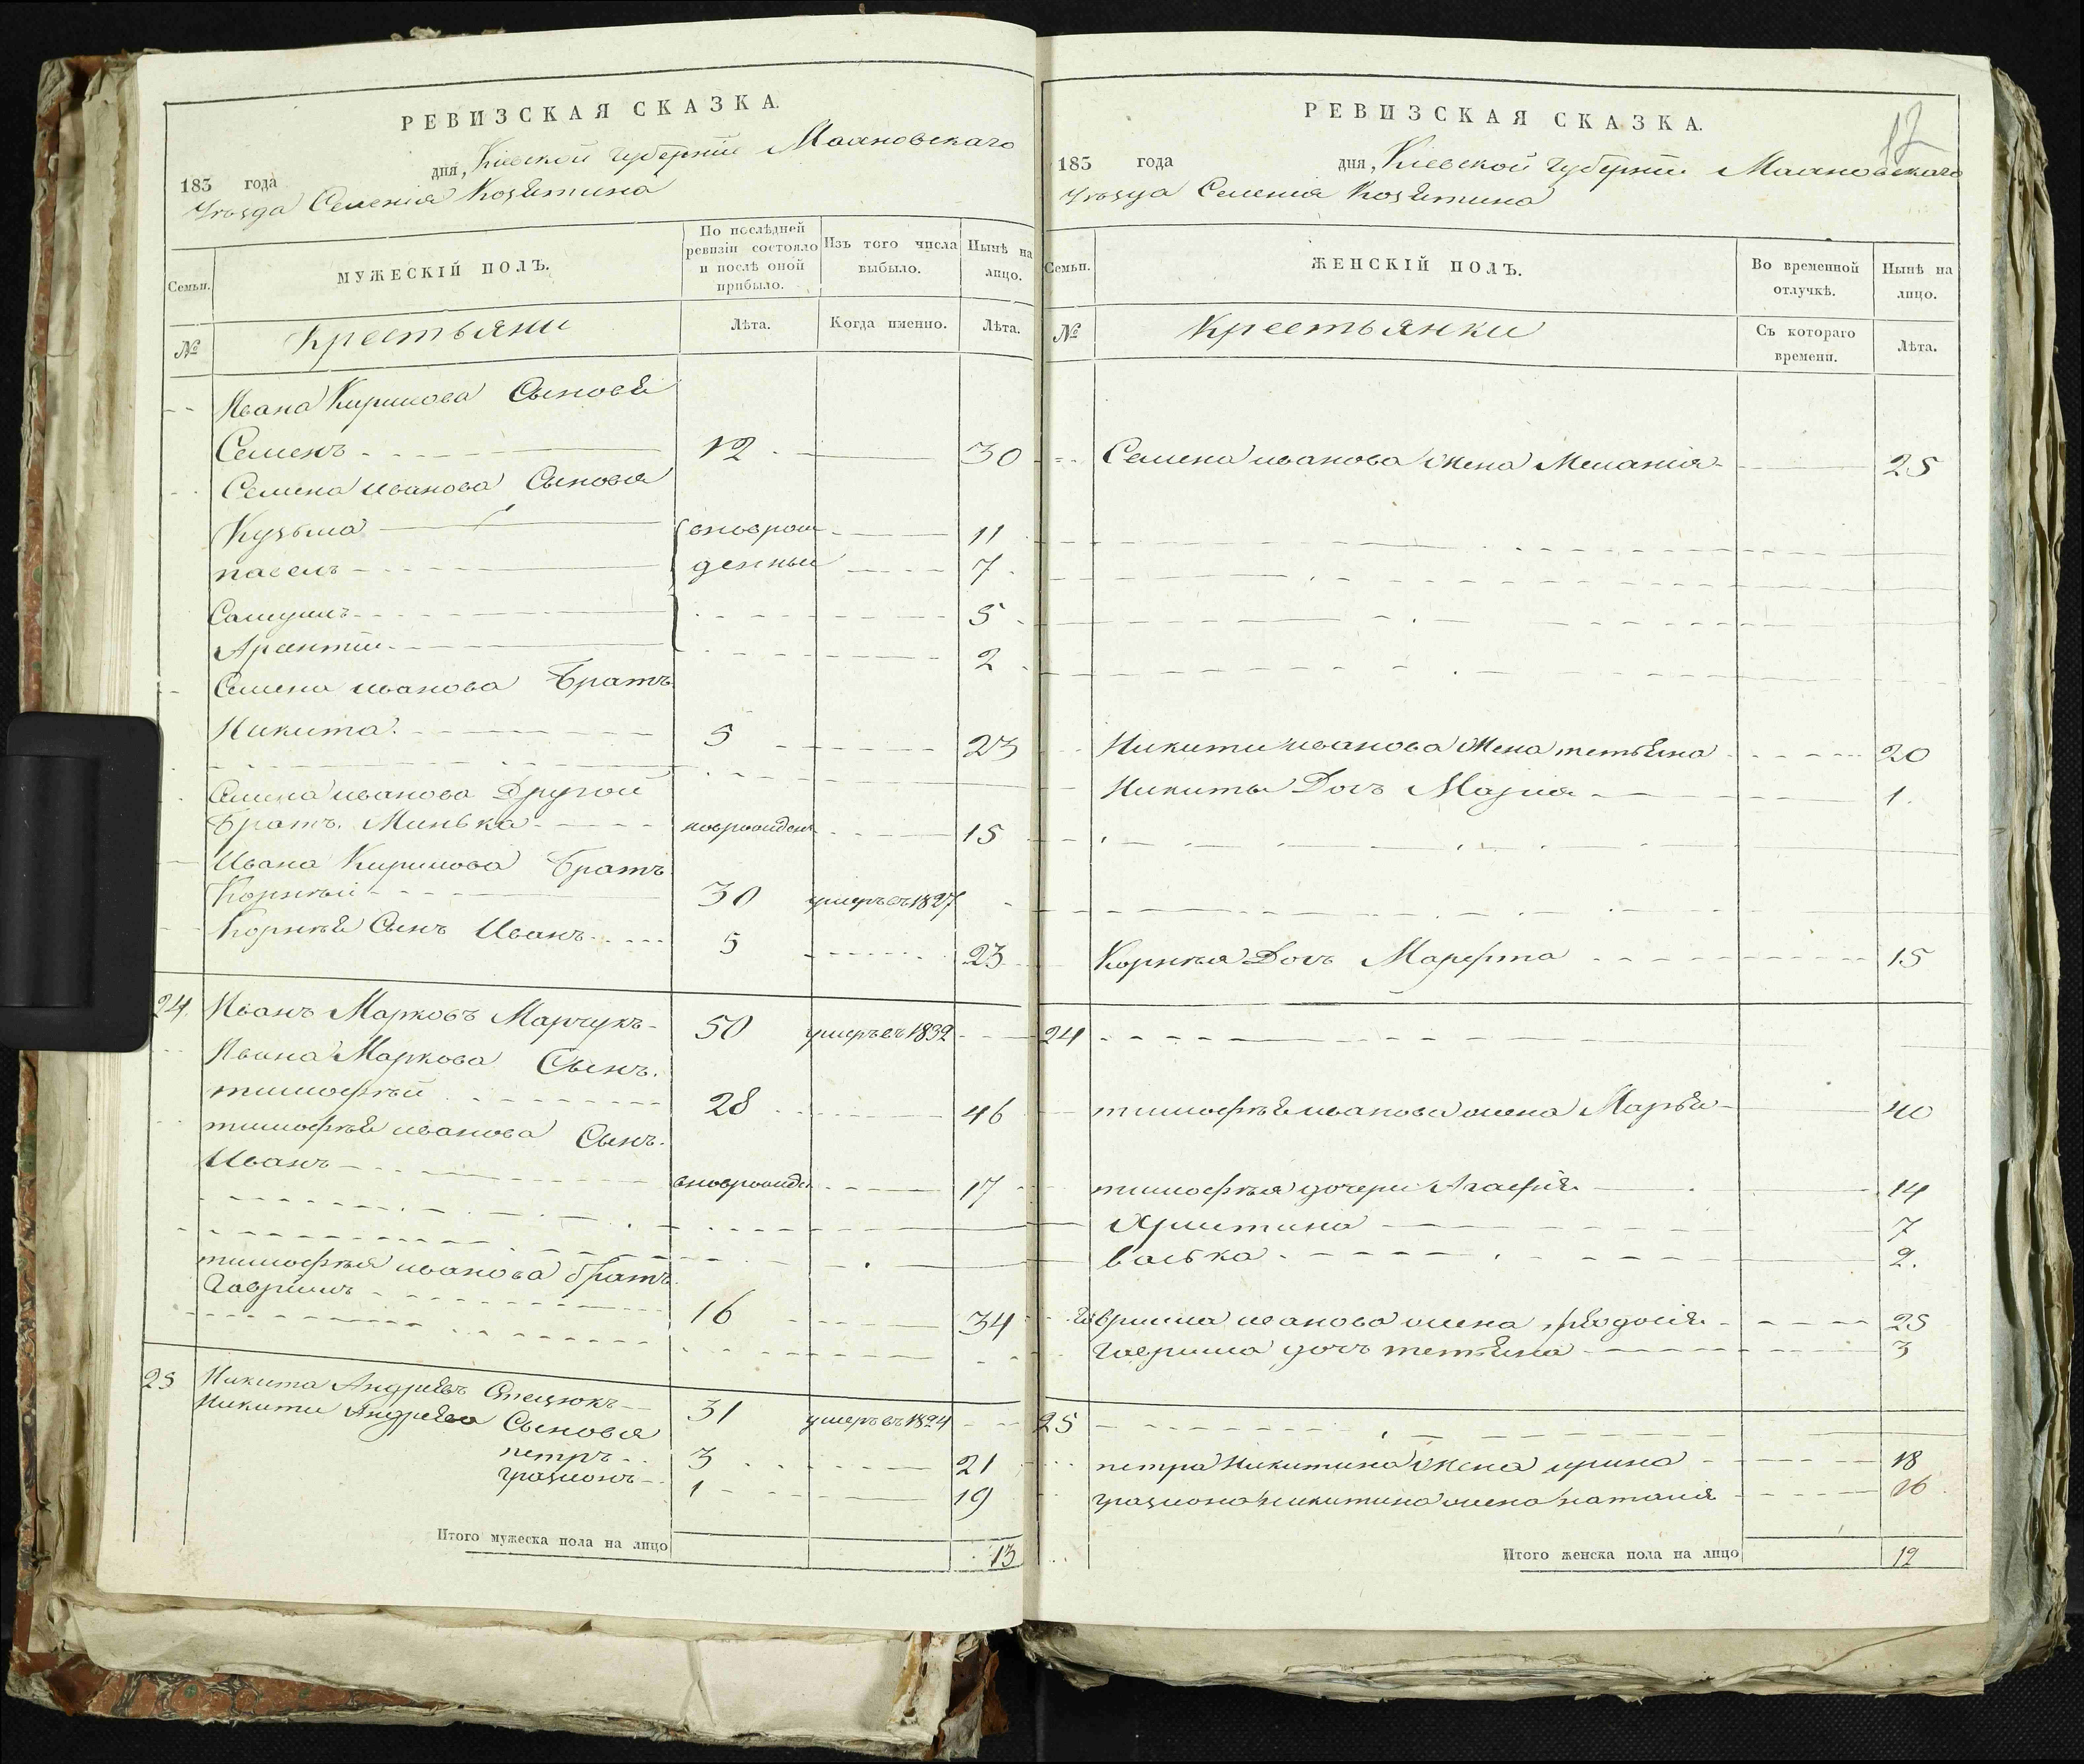 РЕВИЗСКАЯ СКАЗКА.
183 года дня, Кіевской Губерніи Махновскаго
Уѣзда Селенія Козятина
Семьи.
МУЖЕСКІЙ ПОЛЪ.
По послѣдней ревизіи состояло и послѣ оной прибыло.
Изъ того числа выбыло.
Нынѣ на лицо.
№
Крестьяни
Лѣта.
Когда именно.
Лѣта.
Ивана Кирилова Сыновья
Семенъ 12 30
Семена иванова Сыновья
Кузьма вноврож 11
павелъ денныи 7
Самуилъ 5
2
Семена иванова Братъ
Никита 5 23
Семена иванова Другой
Братъ Минька новрожден 15
Ивана Кирилова Братъ
Корнѣй 30 умеръ въ 1827
Корнѣя Сынъ Иванъ 5 23
24. Иванъ Марковъ Марчукъ 50 умеръ въ 1832
Ивана Маркова Сынъ.
тимофѣй 28 46
тимофѣя иванова Сынъ.
Иванъ вноврожде 17
тимофѣя иванова братъ
Гаврилъ 16 34
25 Никита Андреевъ 31 умеръ въ 1824
Никити Андреева Сыновья
петръ 3 21
1 19
Итого мужеска пола на лицо 13
РЕВИЗСКАЯ СКАЗКА.
12
183 года дня, Кіевской Губерніи Махновскаго
Уѣзда Селенія Козятина
Семьи.
ЖЕНСКІЙ ПОЛЪ.
Во временной отлучкѣ.
Нынѣ на лицо.
№
Крестьянки
Съ котораго времени.
Лѣта.
Семена иванова Жена Меланія 25
Никити иванова Жена тетьяна 20
Никиты Дочъ Марія 1.
Корнѣя Дочъ Марфта 15
24
тимофѣя иванова жена Марья 40
тимофѣя дочери Агафія 14
Христина 7
васька 2.
Гаврила иванова жена феодосія 25
Гаврила дочъ тетьяна 3
25
петра Никитина Жена ирина 18
никитина жена наталія 16
Итого женска пола на лицо 12